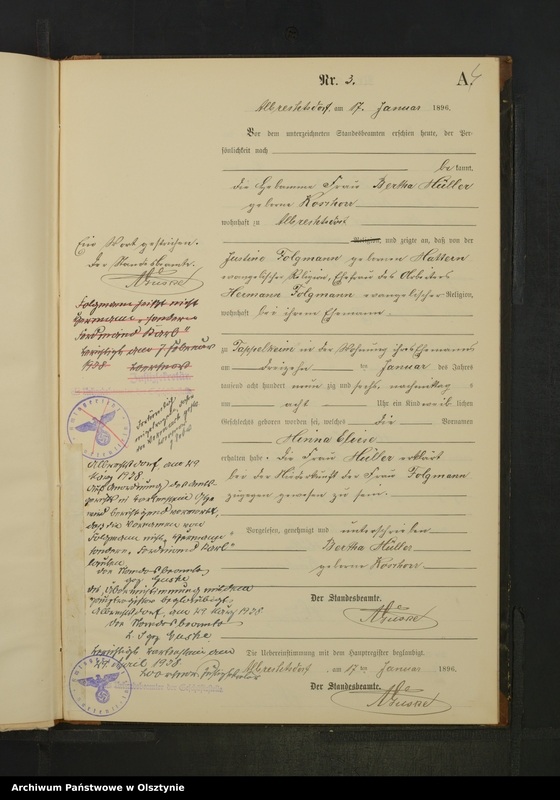 Nr. 3.
A.
Albrechtsdorf, am 17. Januar 1896.
Vor dem unterzeichneten Standesbeamten erschien heute, der Per-
sönlichkeit nach
be kannt,
die Hebamme Frau Bertha Hüller
geborne
wohnhaft zu Albrechtsdorf
Religion, und zeigte an, daß von der
Justine Folgmann gebornen
evangelischer Religion, Ehefrau des Arbeiters
Hermann Folgmann evangelischer Religion,
wohnhaft bei ihrem Ehemann
zu Tappelkeim in der Wohnung ihres Ehemanns
am dreizehn ten Januar des Jahres
tausend acht hundert neun zig und sechs, nachmittag s
um acht Uhr ein Kind weib lichen
Geschlechts geboren worden sei, welches die Vornamen
Minna
erhalten habe. Die Frau Hüller erklärt
bei der Niederkunft der Frau Folgmann
zugegen gewesen zu sein.
Vorgelesen, genehmigt und unterschrieben
Bertha Hüller
geborene
Der Standesbeamte.
Guske
Die Uebereinstimmung mit dem Hauptregister beglaubigt.
Albrechtsdorf, am 17 ten Januar 1896.
Der Standesbeamte.
Guske
Ein Wort gestrichen.
Der Standesbeamte.
Guske
Folgmann heißt nicht
Hermann, sondern
Ferdinand Karl"
berichtigt am 7 Februar
1938
Albrechtsdorf, am 29
März 1938
Auf Anordnung des Amts-
gerichts in Bartenstein
wird berichtigend vermerkt,
daß die Vornamen von
Folgmann nicht "Hermann"
sondern "Ferdinand Karl"
lauten
Der Standesbeamte
gez Guske
Die Übereinstimmung mit dem
Hauptregister beglaubigt.
Albrechtsdorf, am 29 März 1938
Der Standesbeamte
gez Guske
Berichtigt Bartenstein am
April 1938
Justizsekretär
der Geschäftsstelle
Archiwum Państwowe w Olsztynie